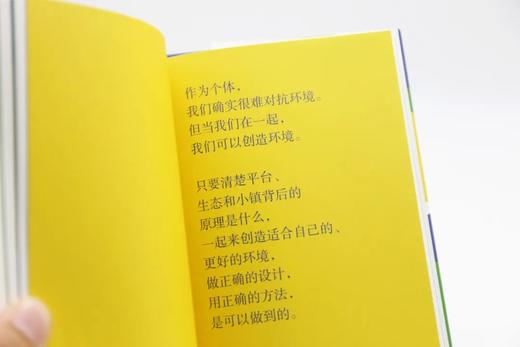 作为个体，
我们确实很难对抗环境。
但当我们在一起，
我们可以创造环境。
只要清楚平台、
生态和小镇背后的
原理是什么，
一起来创造适合自己的、
更好的环境，
做正确的设计，
用正确的方法，
是可以做到的。